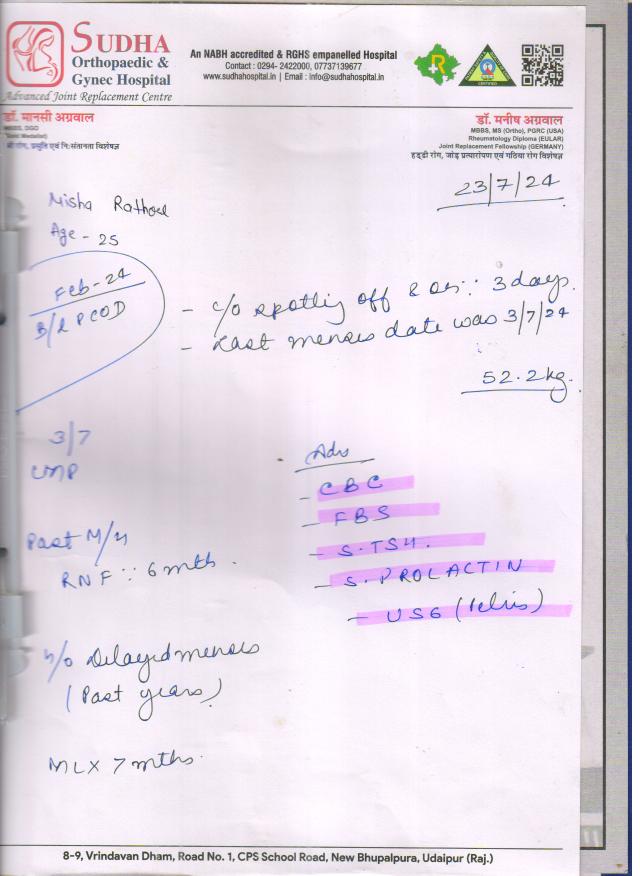 SUDHA
Orthopaedic &
Gynec Hospital
Advanced Joint Replacement Centre
An NABH accredited & RGHS empanelled Hospital
Contact : 0294- 2422000, 07737139677
www.sudhahospital.in | Email : info@sudhahospital.in
डॉ. मानसी अग्रवाल
MBBS, DGO
रोग, प्रसुति एवं नि:संतानता विशेषज्ञ
डॉ. मनीष अग्रवाल
MBBS, MS (Ortho), PGRC (USA)
Rheumatology Diploma (EULAR)
Joint Replacement Fellowship (GERMANY)
हड्डी रोग, जोड़ प्रत्यारोपण एवं गठिया रोग विशेषज्ञ
23/7/24
Misha Rathore
Age - 25
Feb-24
B/L PCOD
- c/o spotting off & on :: 3 days.
- Last menses date was 3/7/24
52.2kg.
3/7
LMP
Past M/H
RNF :: 6 mth.
H/O Delayed menses
(Past years)
MLX 7 mths.
Adv
- CBC
- FBS
- S.TSH.
- S.PROLACTIN
- USG (Pelvis)
8-9, Vrindavan Dham, Road No. 1, CPS School Road, New Bhupalpura, Udaipur (Raj.)